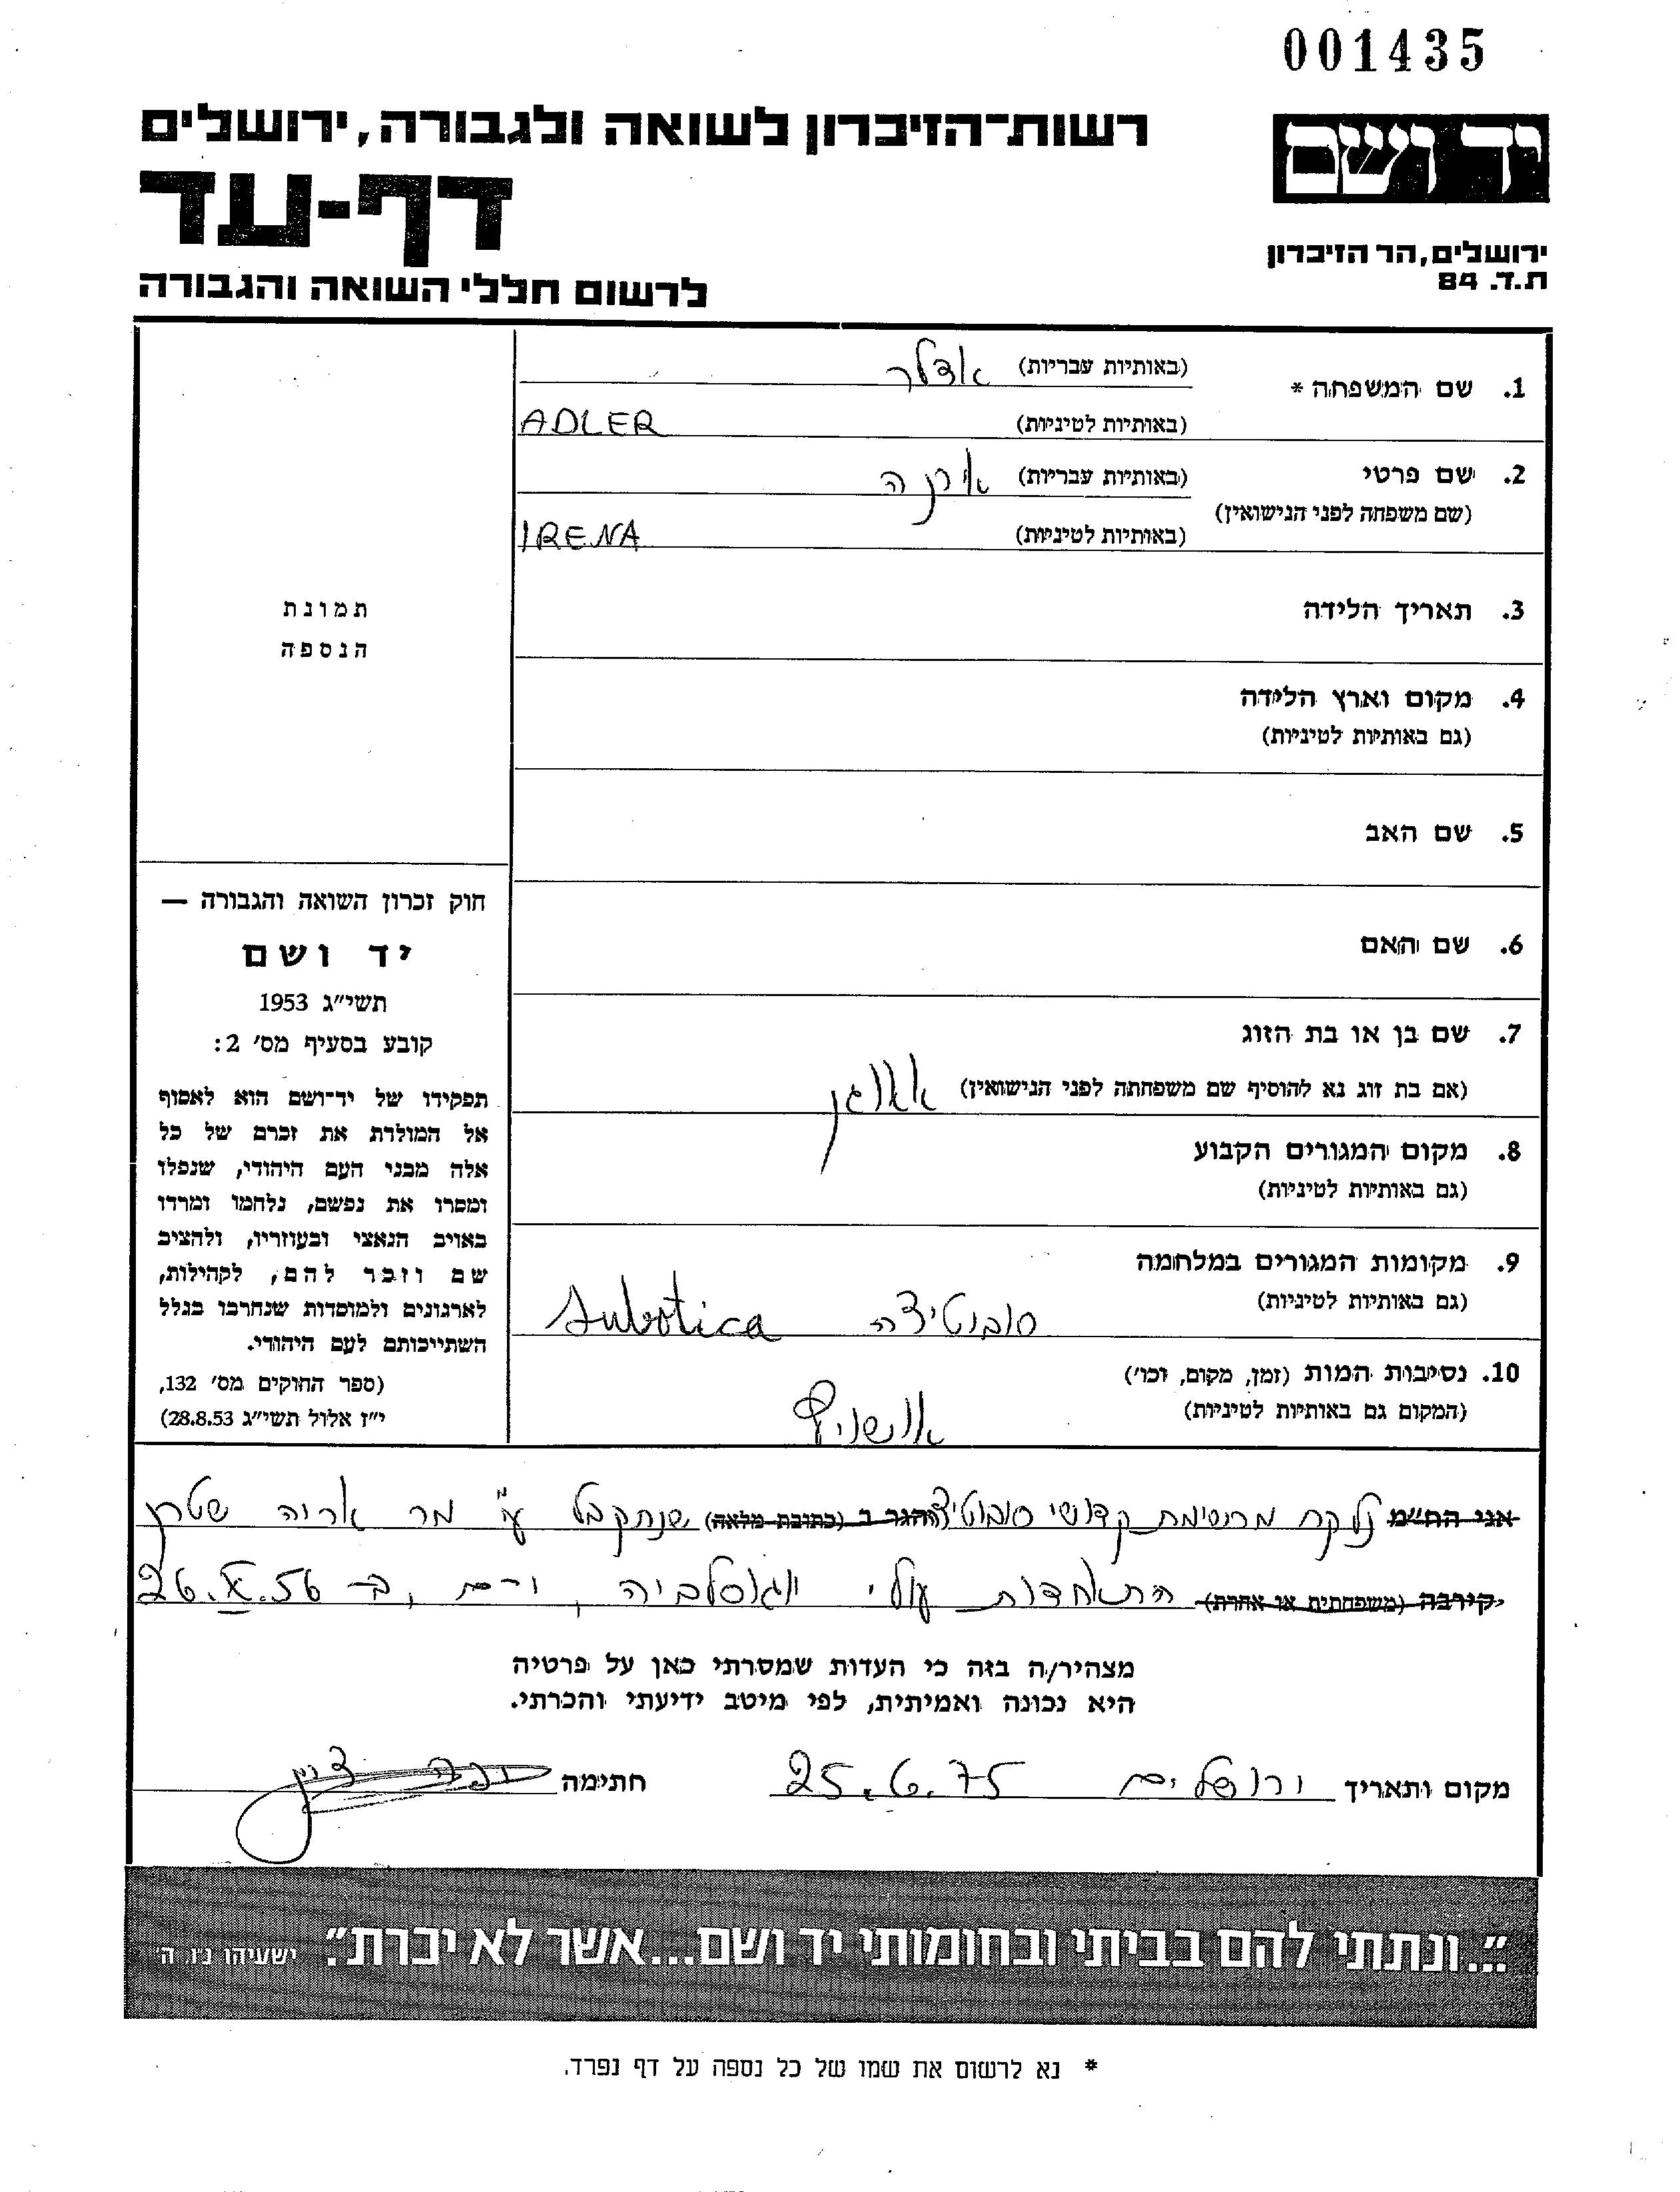 001435
יד ושם
רשות-הזיכרון לשואה ולגבורה, ירושלים
דף-עד
לרשום חללי השואה והגבורה
ירושלים, הר הזיכרון
ת.ד. 84
1. שם המשפחה * (באותיות עבריות) אדלר
(באותיות לטיניות) ADLER
2. שם פרטי (באותיות עבריות) אירנה
(שם משפחה לפני הנישואין)
(באותיות לטיניות) IRENA
3. תאריך הלידה
4. מקום וארץ הלידה
(גם באותיות לטיניות)
5. שם האב
6. שם האם
7. שם בן או בת הזוג
(אם בת זוג נא להוסיף שם משפחתה לפני הנישואין)
8. מקום המגורים הקבוע
(גם באותיות לטיניות)
9. מקומות המגורים במלחמה
(גם באותיות לטיניות) סובוטיצה Subotica
10. נסיבות המות (זמן, מקום, וכו')
(המקום גם באותיות לטיניות) אושויץ
תמונת
הנספה
חוק זכרון השואה והגבורה —
יד ושם
תשי"ג 1953
קובע בסעיף מס' 2:
תפקידו של יד-ושם הוא לאסוף
אל המולדת את זכרם של כל
אלה מבני העם היהודי, שנפלו
ומסרו את נפשם, נלחמו ומרדו
באויב הנאצי ובעוזריו, ולהציב
שם וזכר להם, לקהילות,
לארגונים ולמוסדות שנחרבו בגלל
השתייכותם לעם היהודי.
(ספר החוקים מס' 132,
י"ז אלול תשי"ג 28.8.53)
אני הח"מ נלקח מרשימת קדושי סובוטיצה הגר ב (כתובת מלאה) שנתקבל ע"י מר אריה שטרן
קירבה (משפחתית או אחרת) התאחדות עולי יוגוסלביה, י-ם, ב- 26.X.56
מצהיר/ה בזה כי העדות שמסרתי כאן על פרטיה
היא נכונה ואמיתית, לפי מיטב ידיעתי והכרתי.
מקום ותאריך ירושלים 25.6.75 חתימה
"...ונתתי להם בביתי ובחומותי יד ושם...אשר לא יכרת". ישעיהו נ"ו, ה'
* נא לרשום את שמו של כל נספה על דף נפרד.